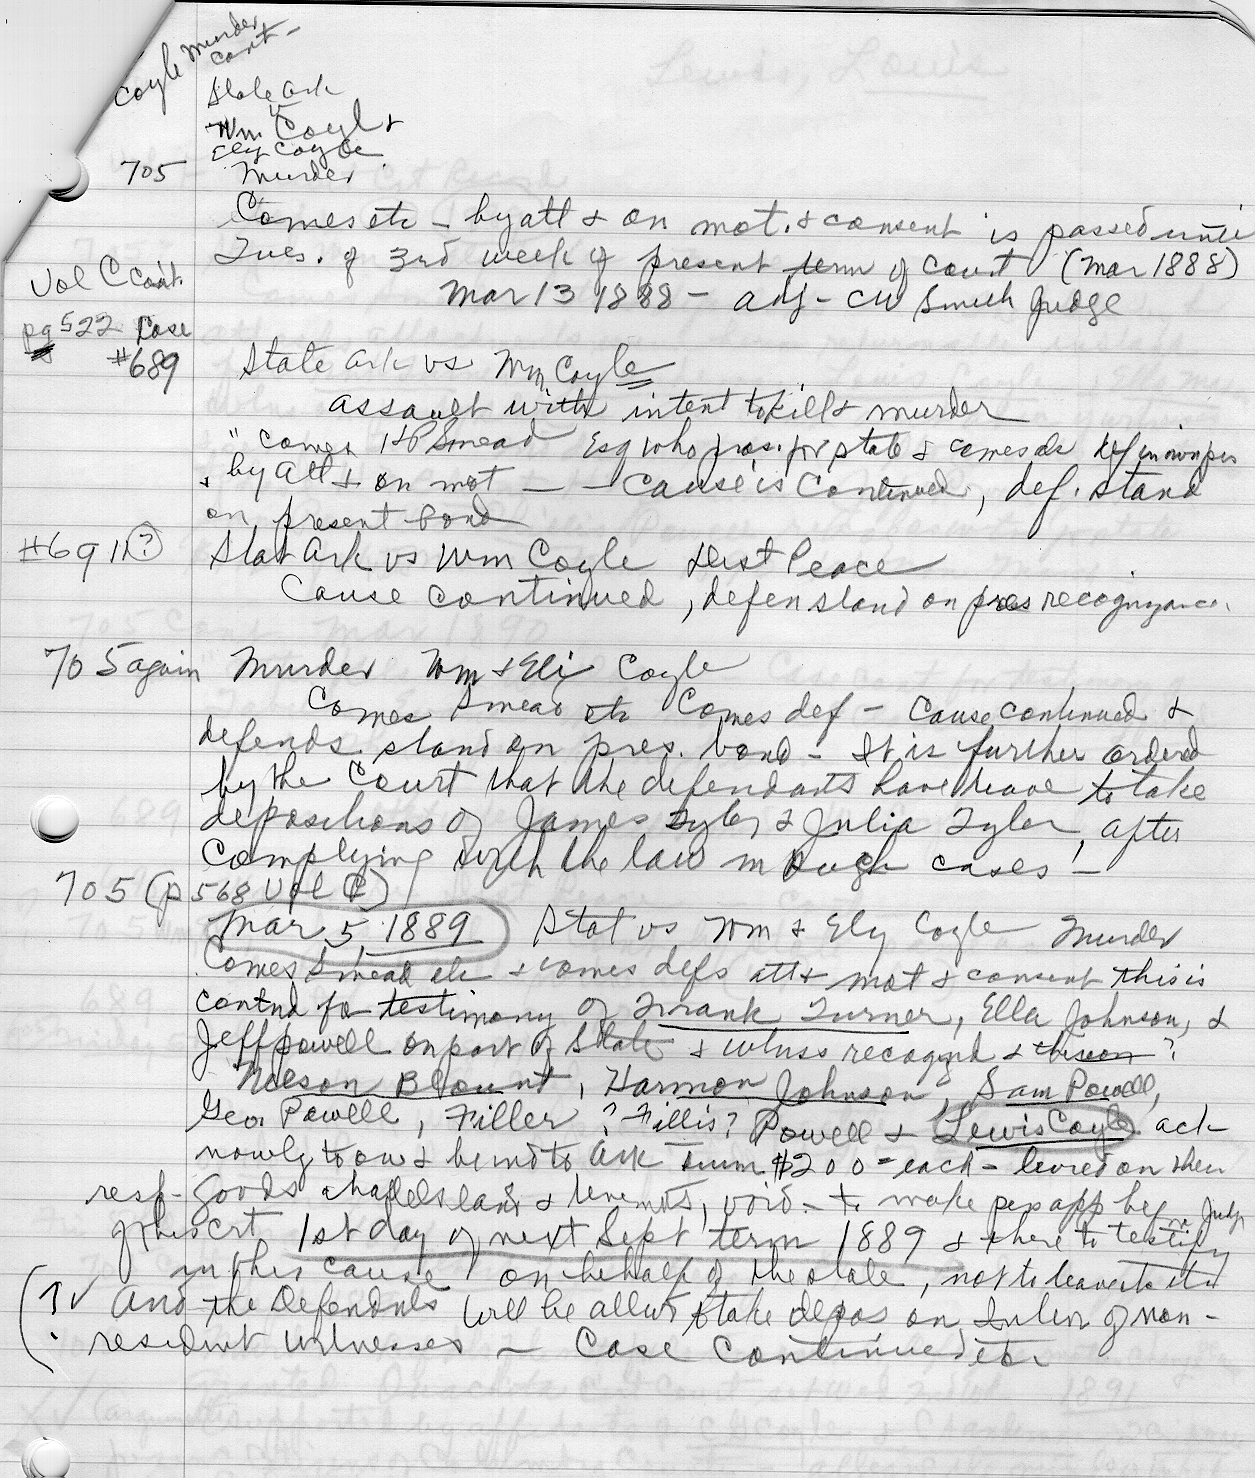 Coyle Murder
cont-
State Ark
v
Wm Coyle &
Ely Coyle
705 Murder
Comes etc - by att & on mot. & consent is passed until
Tues. of 3rd week of present term of court (Mar 1888)
Mar 13 1888 - adj - CW Smith Judge
Vol C cont.
pg 522 Case
#689 State Ark vs Wm Coyle
assault with intent to kill & murder
"comes HP Smead Esq who pros. for state & comes de def in own per
& by att & on mot - - cause is continued, def. stand
on present bond
#691 (?) Stat Ark vs Wm Coyle Dist Peace
Cause continued, defen stand on pres recognizance.
705 again Murder Wm & Eli Coyle
Comes Smead etc Comes def - cause continued &
defends. stand on pres. bond - It is further ordered
by the Court that the defendants have leave to take
depositions of James Tyler & Julia Tyler, after
complying with the law in such cases -
705 (p 568 Vol C)
Mar 5, 1889 Stat vs Wm & Ely Coyle Murder
Comes Smead etc & comes defs att & mot & consent this is
contnd for testimony of Frank Turner, Ella Johnson, &
Jeff Powell on part of State & witness recognzd &
Nelson Blount, Harmon Johnson, Sam Powell,
Geo. Powell, Filler ? Fillis? Powell & Lewis Coyle ack
nowlg to ow & be indto Ark sum $200 = each - levied on their
resp- goods chattels land & tenemts, void - to make pers app bef Judge
of this crt 1st day of next Sept term 1889 & there to testify
in this cause on behalf of the state, not to leave
? √ And the Defendnts will be allwd to take depos on of non-
resident witnesses - Case Continued etc